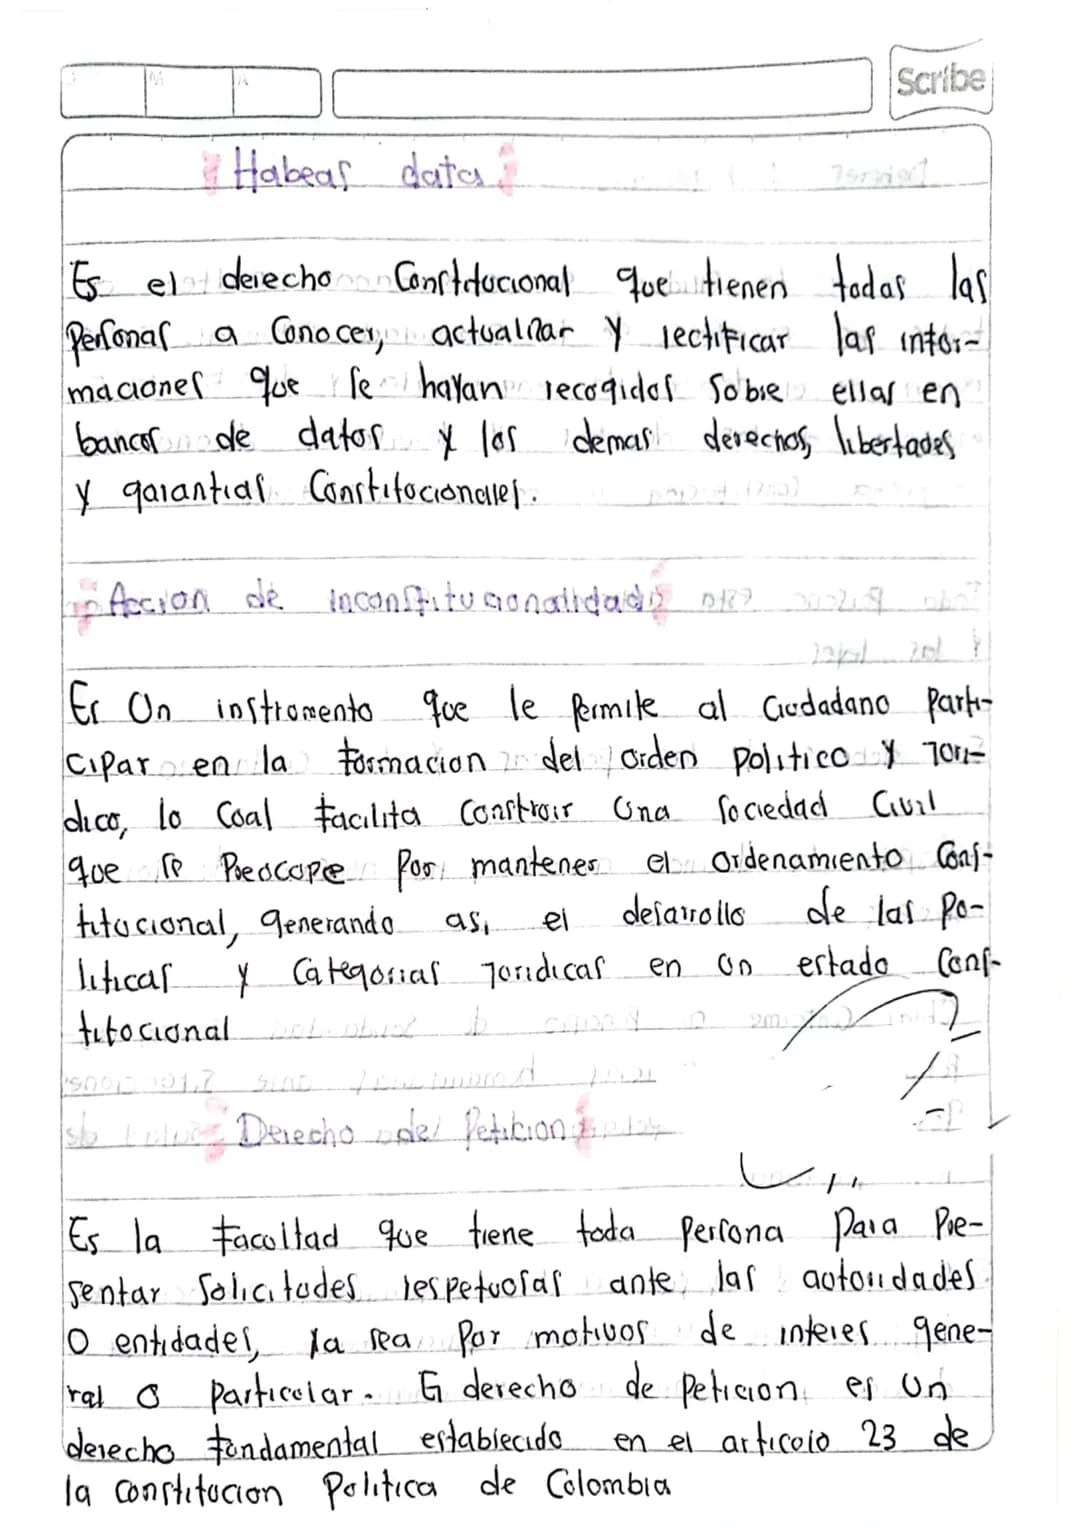 Scribe
Habeas data
Es el derecho Constitucional que tienen todas las
Personas a Conocer, actualizar y rectificar las infor-
maciones que se hayan recogidos Sobre ellas en
bancos de datos y los demas derechos, libertades
y garantias Constitucionales.
Accion de inconstitucionalidad
Es Un instrumento que le Permite al Ciudadano Parti-
cipar en la formacion del orden politico y Juri-
dico, lo Cual facilita Construir Una Sociedad Civil
que se Preocupe Por mantener el ordenamiento Cons-
titucional, generando asi el desarrollo de las Po-
liticas y Categorias Juridicas en un estado Cons-
titucional
Derecho del Peticion
Es la facultad que tiene toda Persona Para Pre-
sentar Solicitudes respetuosas ante las autoridades
O entidades, ya sea Por motivos de interes gene-
ral o Particular. El derecho de Peticion es un
derecho fundamental establecido en el articulo 23 de
la constitucion Politica de Colombia